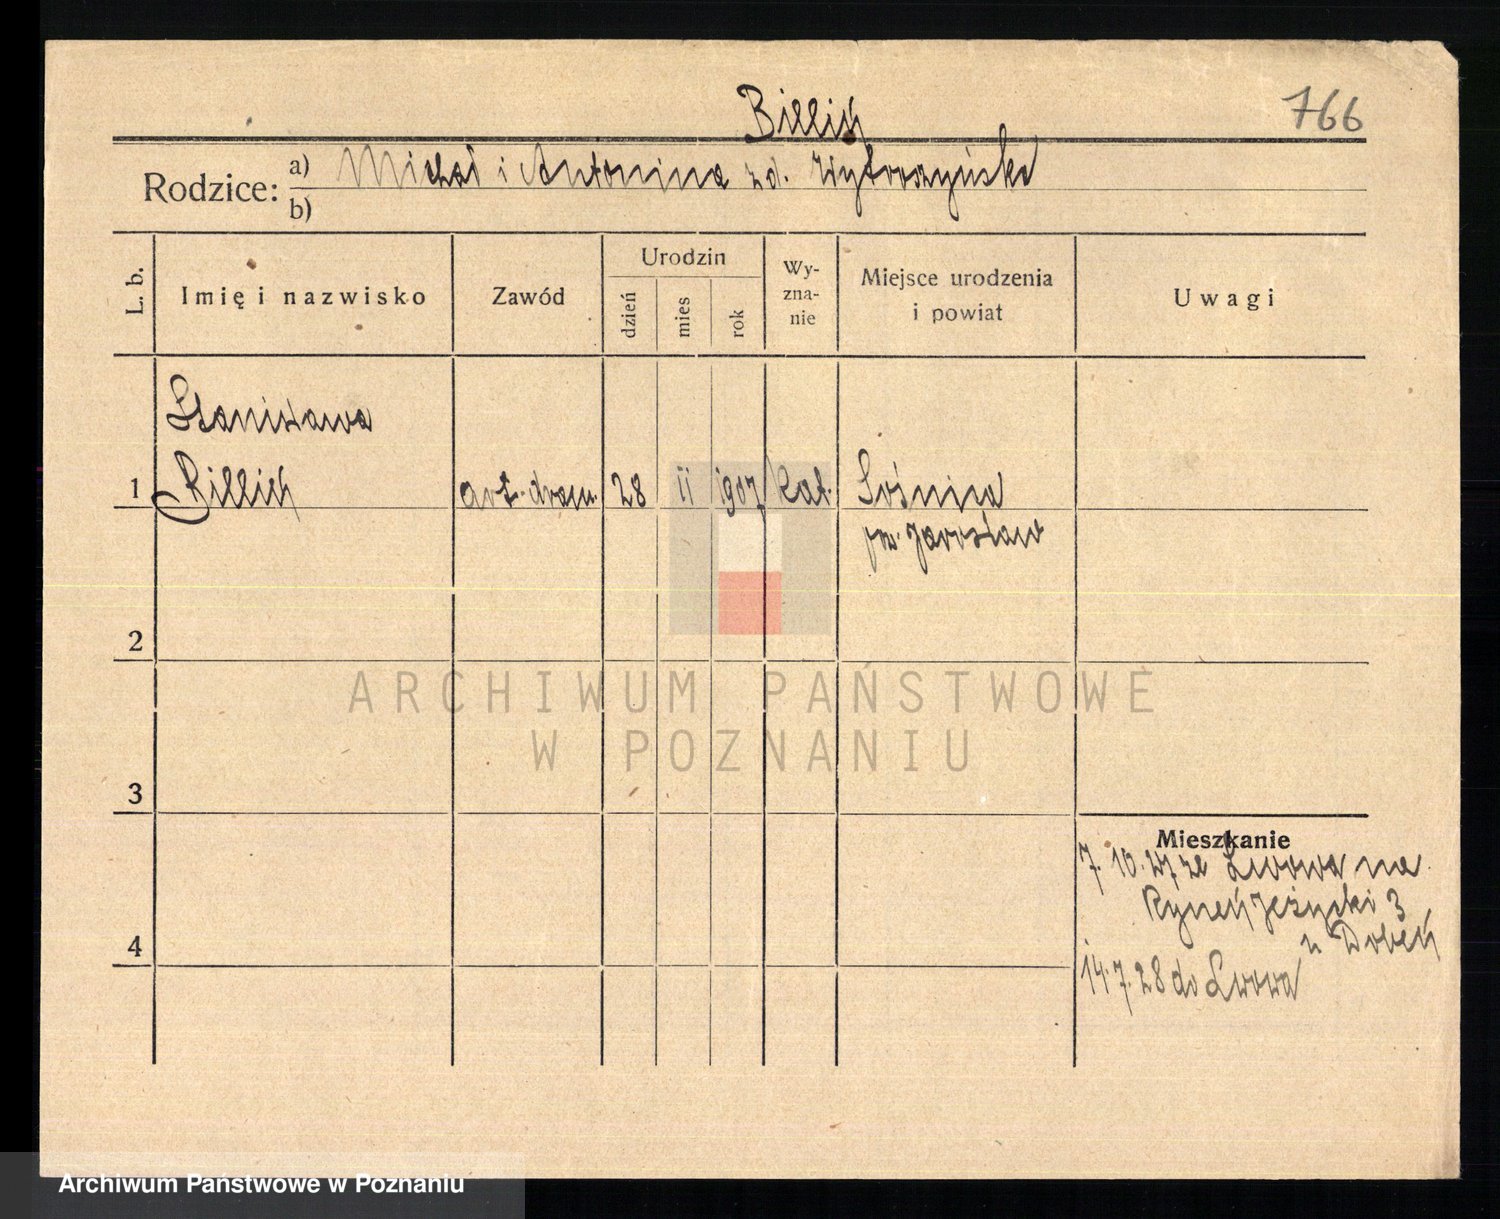 766
Billich
Rodzice: a) Michał i Antonina zd.
b)
L. b.
Imię i nazwisko
Zawód
Urodzin
dzień
mies
rok
Wy-
zna-
nie
Miejsce urodzenia
i powiat
Uwagi
Stanisława
1 Billich art. dram. 28 II 1907 kat. Sośnica
pow. Jarosław
2
3
4
Mieszkanie
7.10.27 ze Lwowa na
Rynek Jeżycki 3
14.7.28 do Lwowa
ARCHIWUM PAŃSTWOWE
W POZNANIU
Archiwum Państwowe w Poznaniu